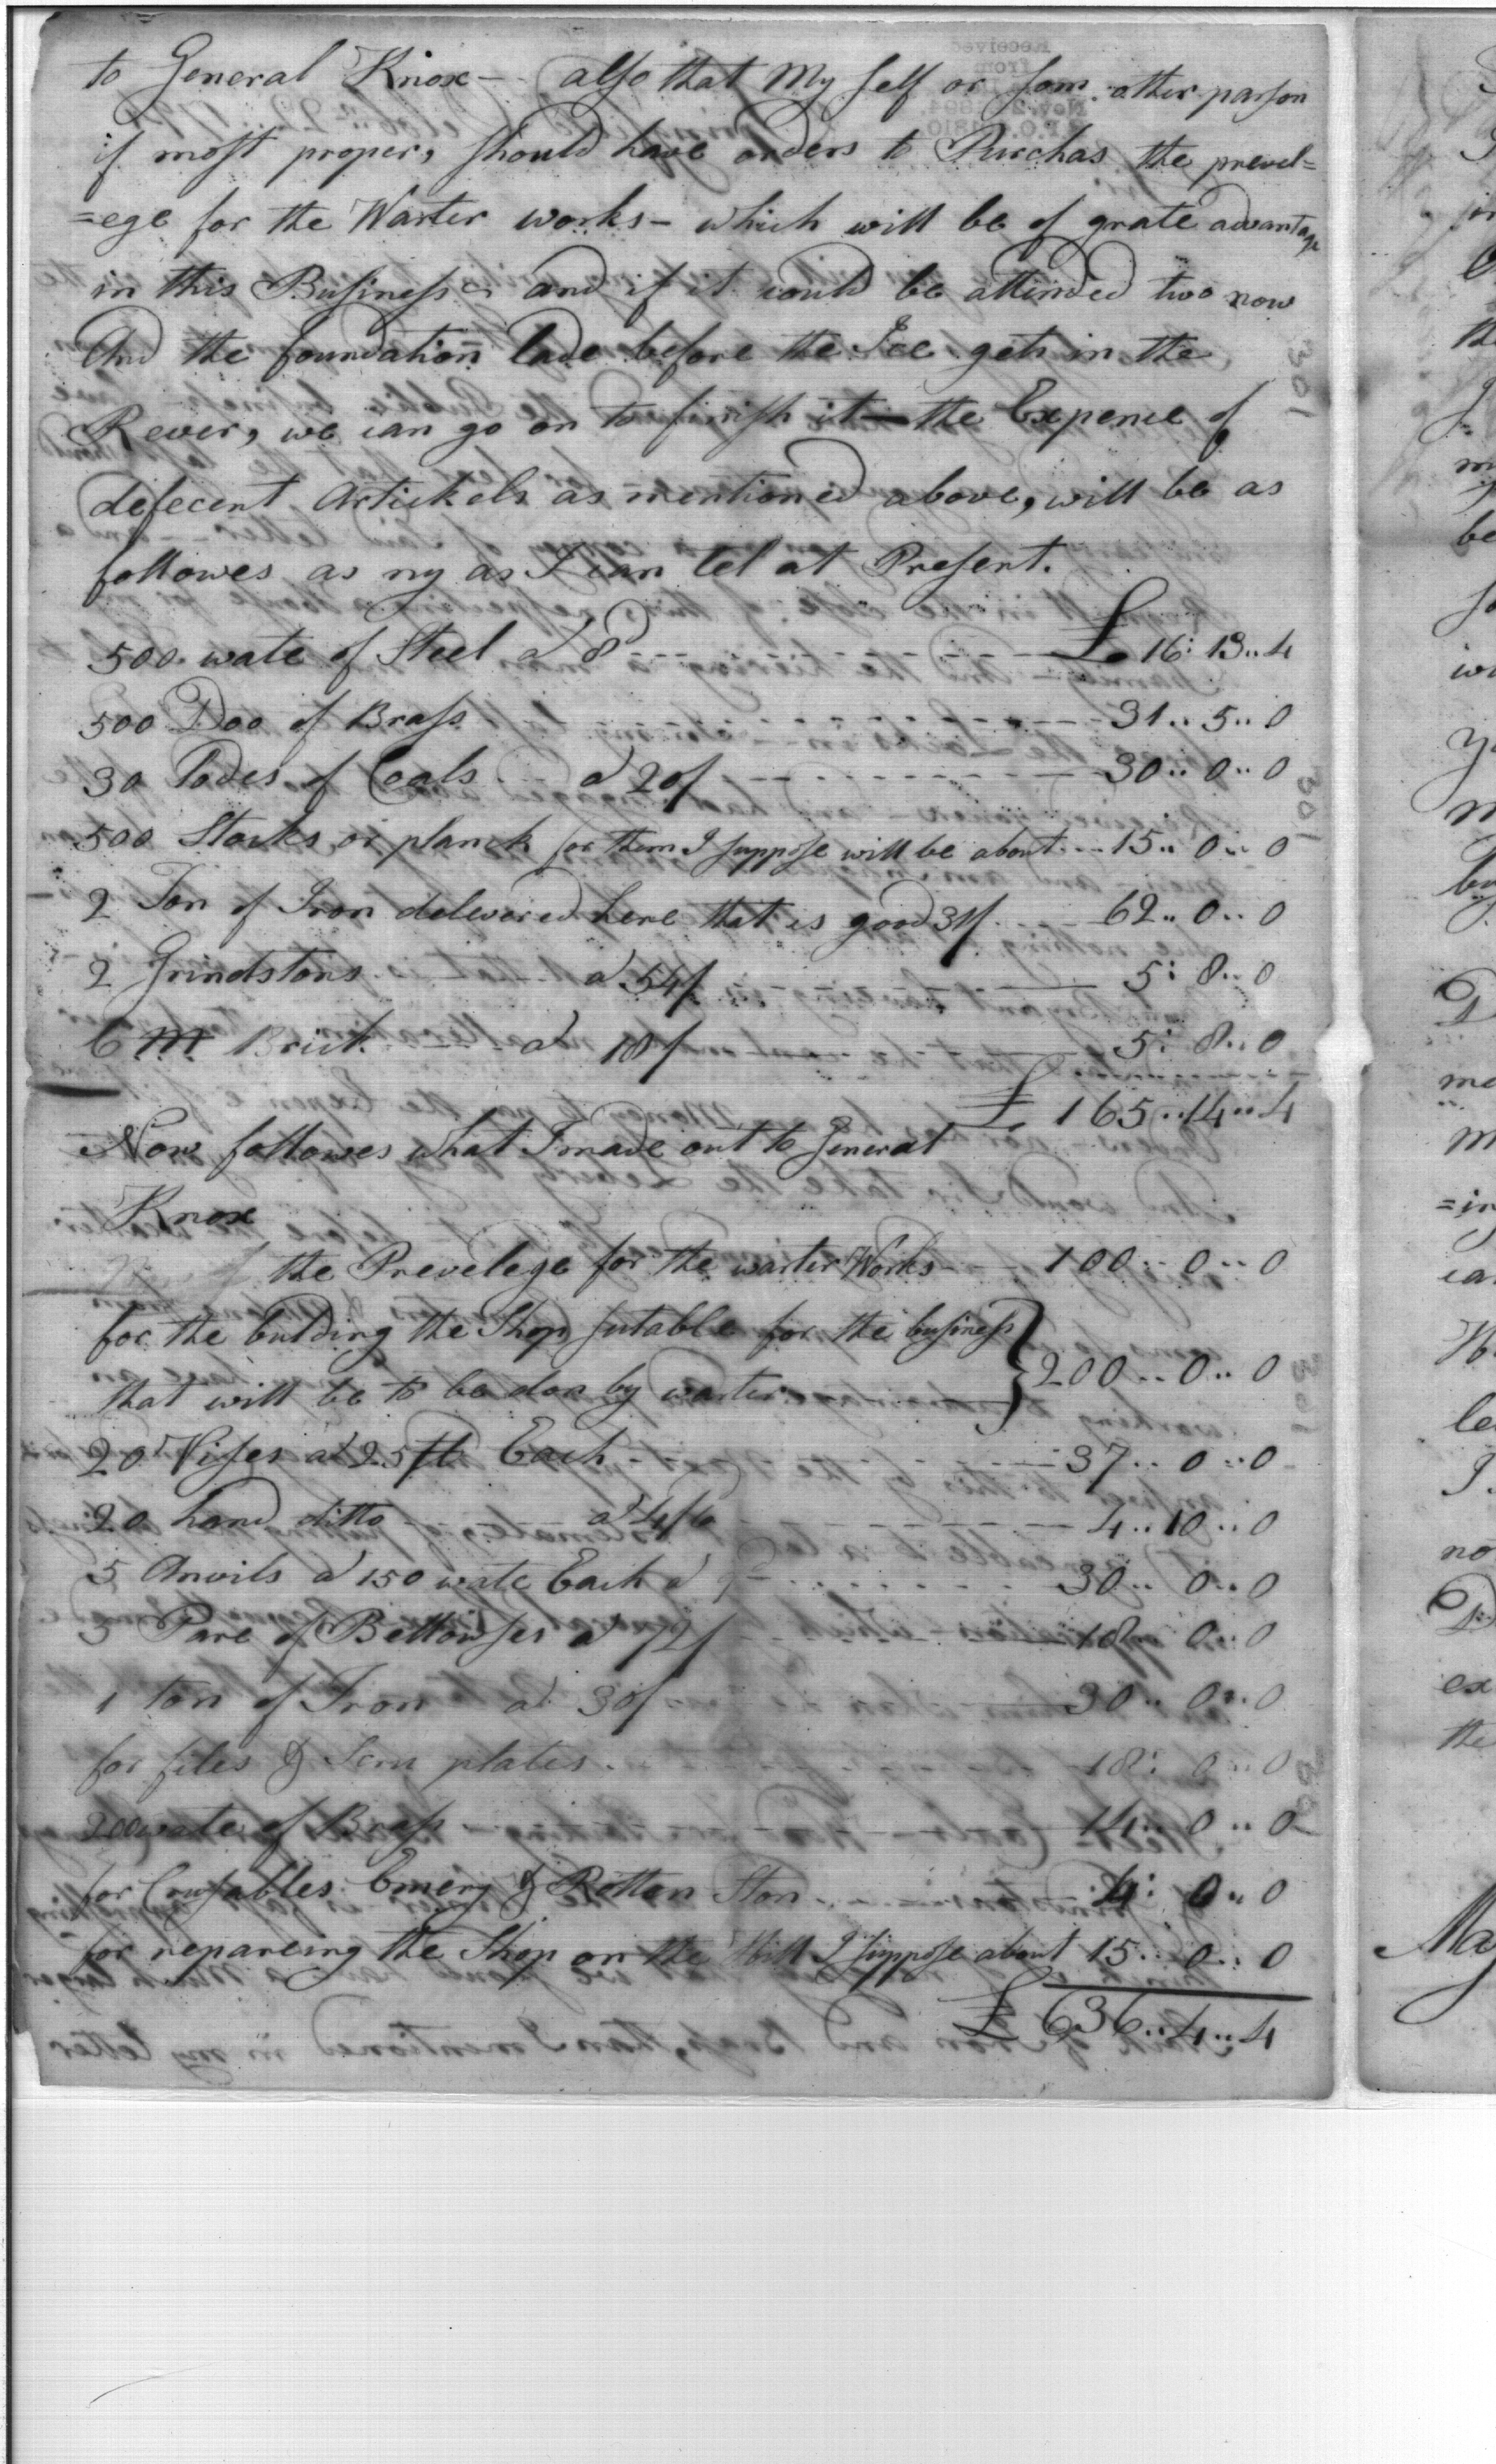 to General Knox - also that My self or som other parson
if most proper, should have orders to Purchas the prevel=
=ege for the Warter works - which will be of grate advantage
in this Business - and if it could be attended two now
And the foundation lade before the Ice gets in the
Rever, we can go on to finish it - the Expence of
deferent Artickels as mentioned above, will be as
followes as ny as I can tel at Present.
500 wate of Steel a 8d £ 16: 13.. 4
500 Doo of Brass 31.. 5.. 0
30 Lodes of Coals a 20/ 30.. 0.. 0
500 Stocks or planck for them I suppose will be about 15.. 0.. 0
2 Ton of Iron delevered here that is good 31£ 62.. 0.. 0
2 Grindstons a 54/ 5: 8.. 0
6 M Brick a 18/ 5: 8.. 0
£ 165.. 14.. 4
Now followes what I made out to General
Knox
the Prevelege for the warter Works 100.. 0.. 0
for the bulding the Shop sutable for the business
that will be to be don by warter } 200.. 0.. 0
20 Vises at 25 lb Each 37.. 0.. 0
20 hand ditto a 4/6 4.. 10.. 0
5 Anvils a 150 wate Each a 30.. 0.. 0
5 Pare of Bellowses a 72/ 18.. 0.. 0
1 ton of Iron a 30£ 30.. 0.. 0
for files & Scru plates 18: 0.. 0
200 wate of Brass 14.. 0.. 0
for Crusables Emery & Rotton Ston 4: 0.. 0
for repareing the Shop on the Hill I suppose about 15.. 0.. 0
£ 636.. 4.. 4